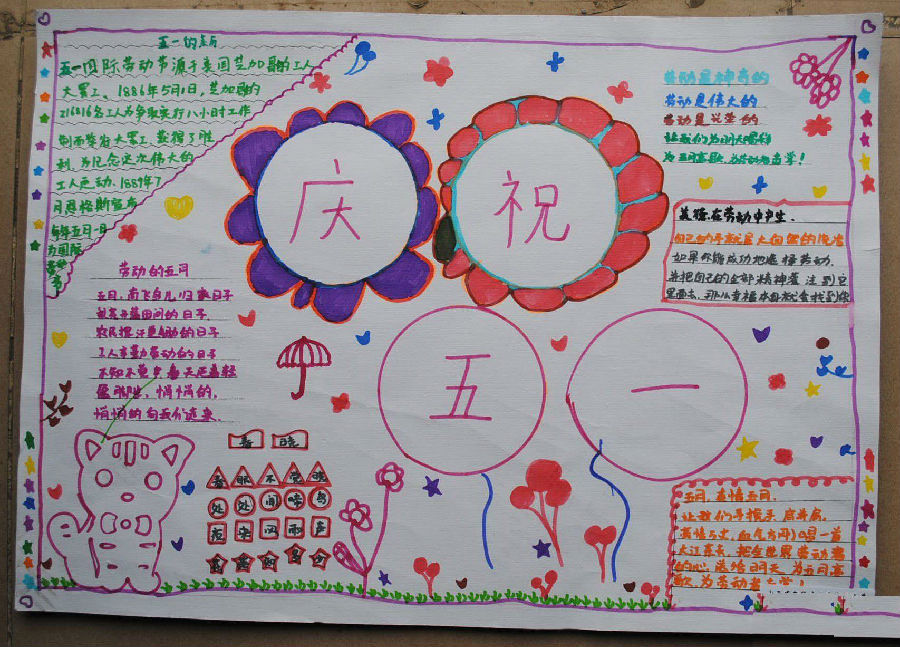 五一的来历
五一国际劳动节源于美国芝加哥的工人
大罢工。1886年5月1日，芝加哥的
216816名工人为争取实行八小时工作
制而举行大罢工，获得了胜
利。为纪念这次伟大的
工人运动，1889年7
月恩格斯宣布
每年五月一日
为国际
劳动
节
庆祝
五一
劳动是神奇的
劳动是伟大的
劳动是光荣的
让我们为明天喝彩
为五月高歌，为劳动者
美德在劳动中产生.
自己的手就是大自然的
如果你能成功地选择劳动.
并把自己的全部精神灌注到它
里面去，那么幸福本身就会找到你
劳动的五月
五月，南飞鸟儿归家日子
田间的日子.
农民挥汗更
工人辛勤劳动的日子
不知不觉中春天
悄悄的.
悄悄的向我们走来.
春晓
春眠不觉晓
处处闻啼鸟
夜来风雨声
花落知多少
五月，真情五月.
让我们手握手 肩并肩.
首
大江东去，把全世界劳动者
的心，送给明天，为五月高
歌，为劳动者